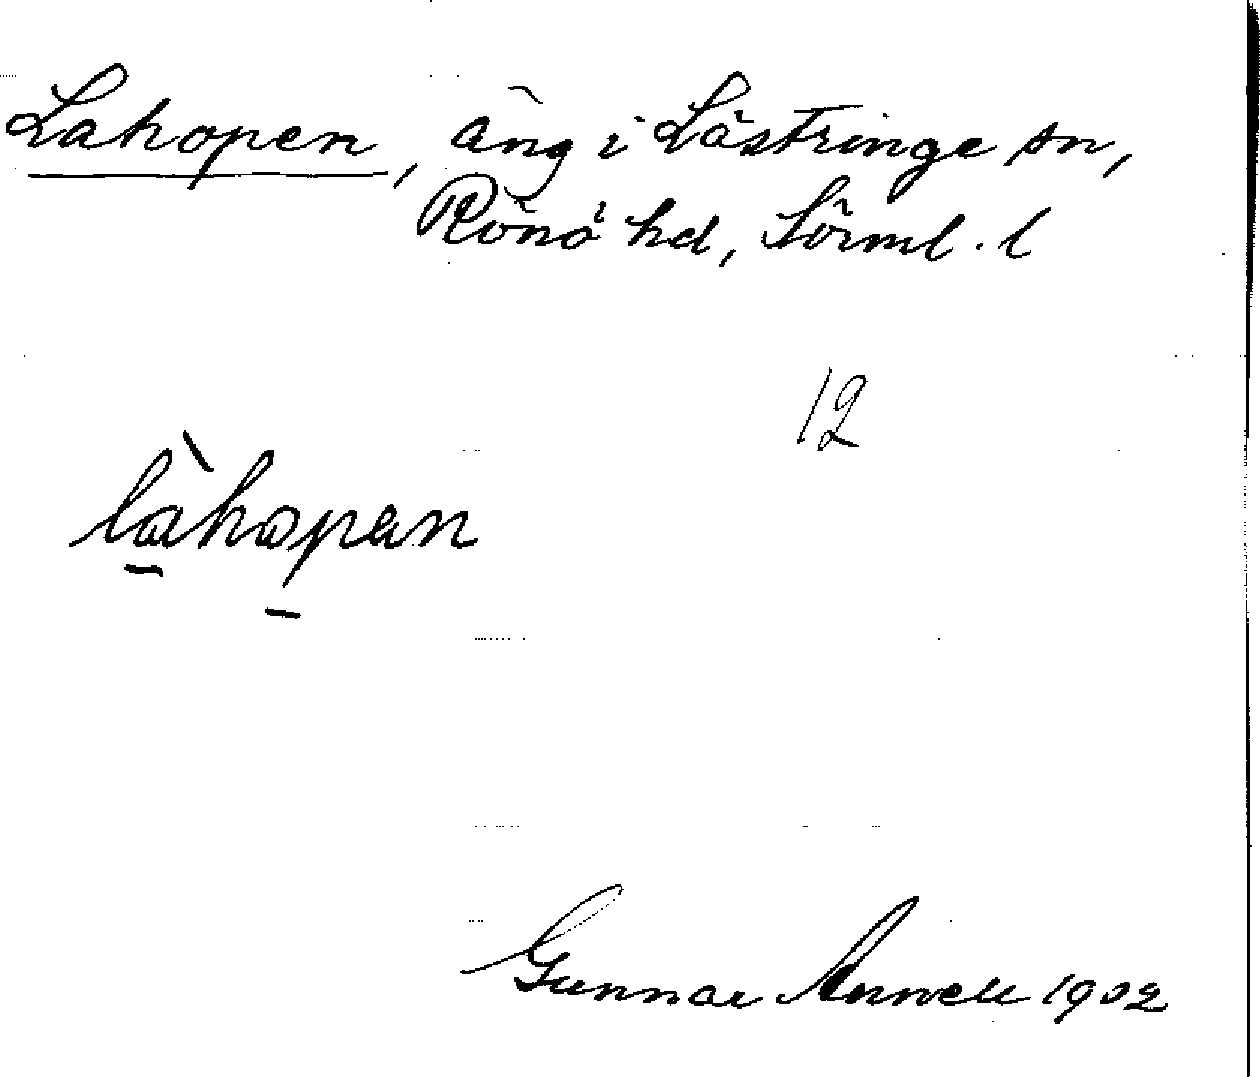 Lahopen, äng i Lästringe sn,
Rönö hd, Sörml. l
12
làhopen
Gunnar Annell 1902